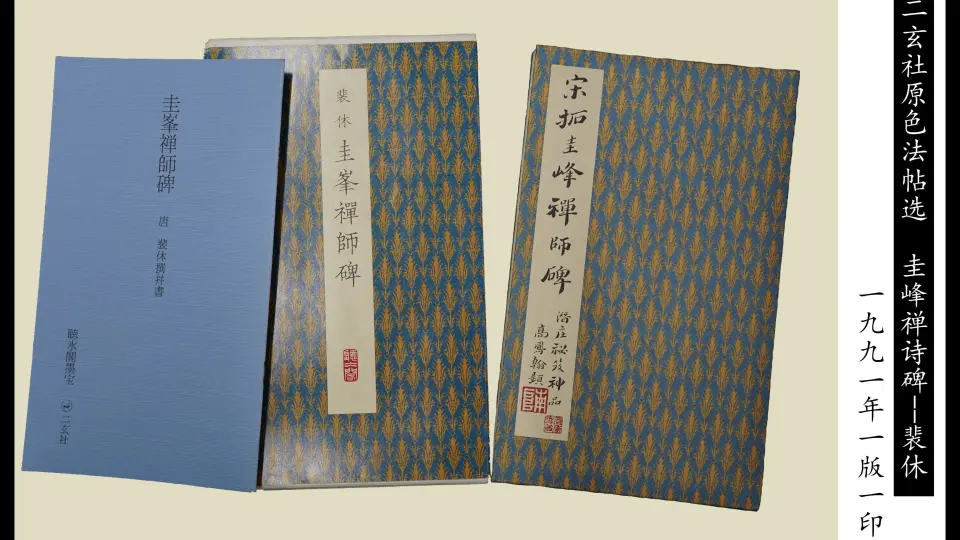 二玄社原色法帖选　圭峰禅诗碑—裴休
一九九一年一版一印
宋拓圭峰禪師碑
高鳳翰題
裴休 圭峯禪師碑
圭峯禅師碑 唐 裴休撰幷書
聴氷閣墨宝 二玄社